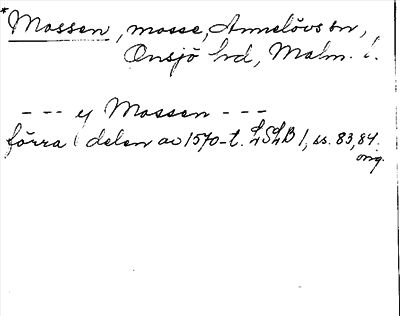 *Mossen, mosse, Annelövs sn,
Onsjö hd, Malm. l.
--- y Mossen ---
förra delen av 1570-t. LSLB 1, ss. 83, 84.
orig.